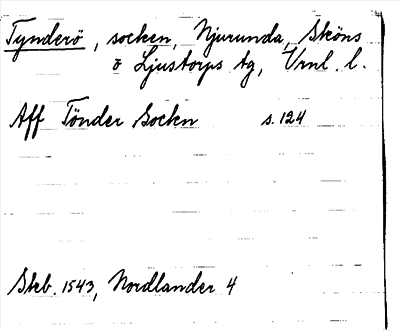 Tynderö, socken, Njurunda, Sköns
& Ljustorps tg, Vrnl. l.
Aff Tönder Sockn s. 124
Skeb. 1543, Nordlander 4